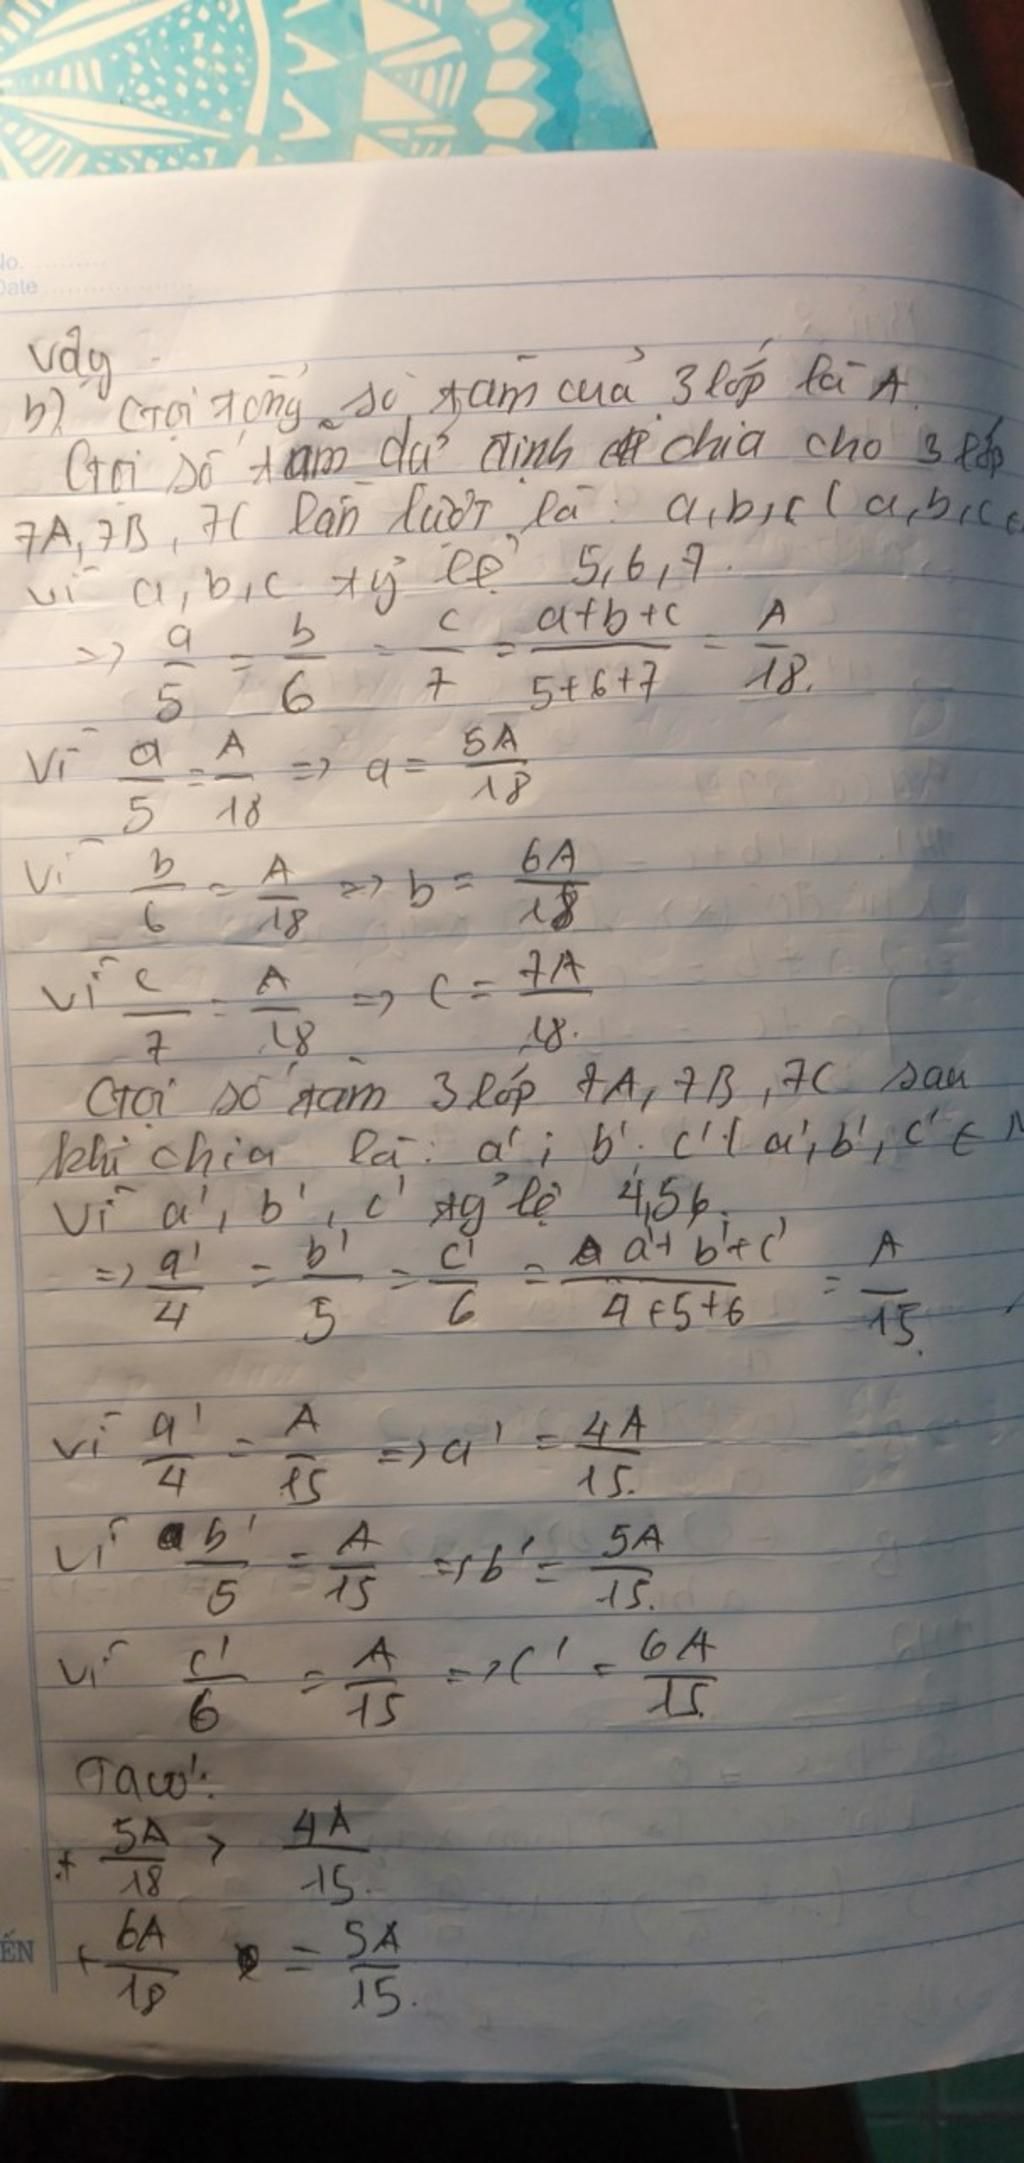 No.
Date
Vậy
b) Gọi tổng số tăm của 3 lớp là A.
Gọi số tăm dự định chia cho 3 lớp
7A, 7B, 7C lần lượt là: a, b, c ( a, b, c ∈
Vì a, b, c tỷ lệ 5, 6, 7.
=> a/5 = b/6 = c/7 = (a+b+c)/(5+6+7) = A/18.
Vì a/5 = A/18 => a = 5A/18
Vì b/6 = A/18 => b = 6A/18
Vì c/7 = A/18 => c = 7A/18.
Gọi số tăm 3 lớp 7A, 7B, 7C sau
khi chia là: a'; b'. c' ( a', b', c' ∈ N
Vì a', b', c' tỷ lệ 4,5 6.
=> a'/4 = b'/5 = c'/6 = (a'+b'+c')/(4+5+6) = A/15.
Vì a'/4 = A/15 => a' = 4A/15.
Vì b'/5 = A/15 => b' = 5A/15.
Vì c'/6 = A/15 => c' = 6A/15.
Ta có:
+ 5A/18 > 4A/15.
+ 6A/18 = 5A/15.
ẾN